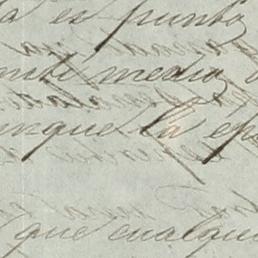 a es punto
ente medio
unque la ép
que cualqui